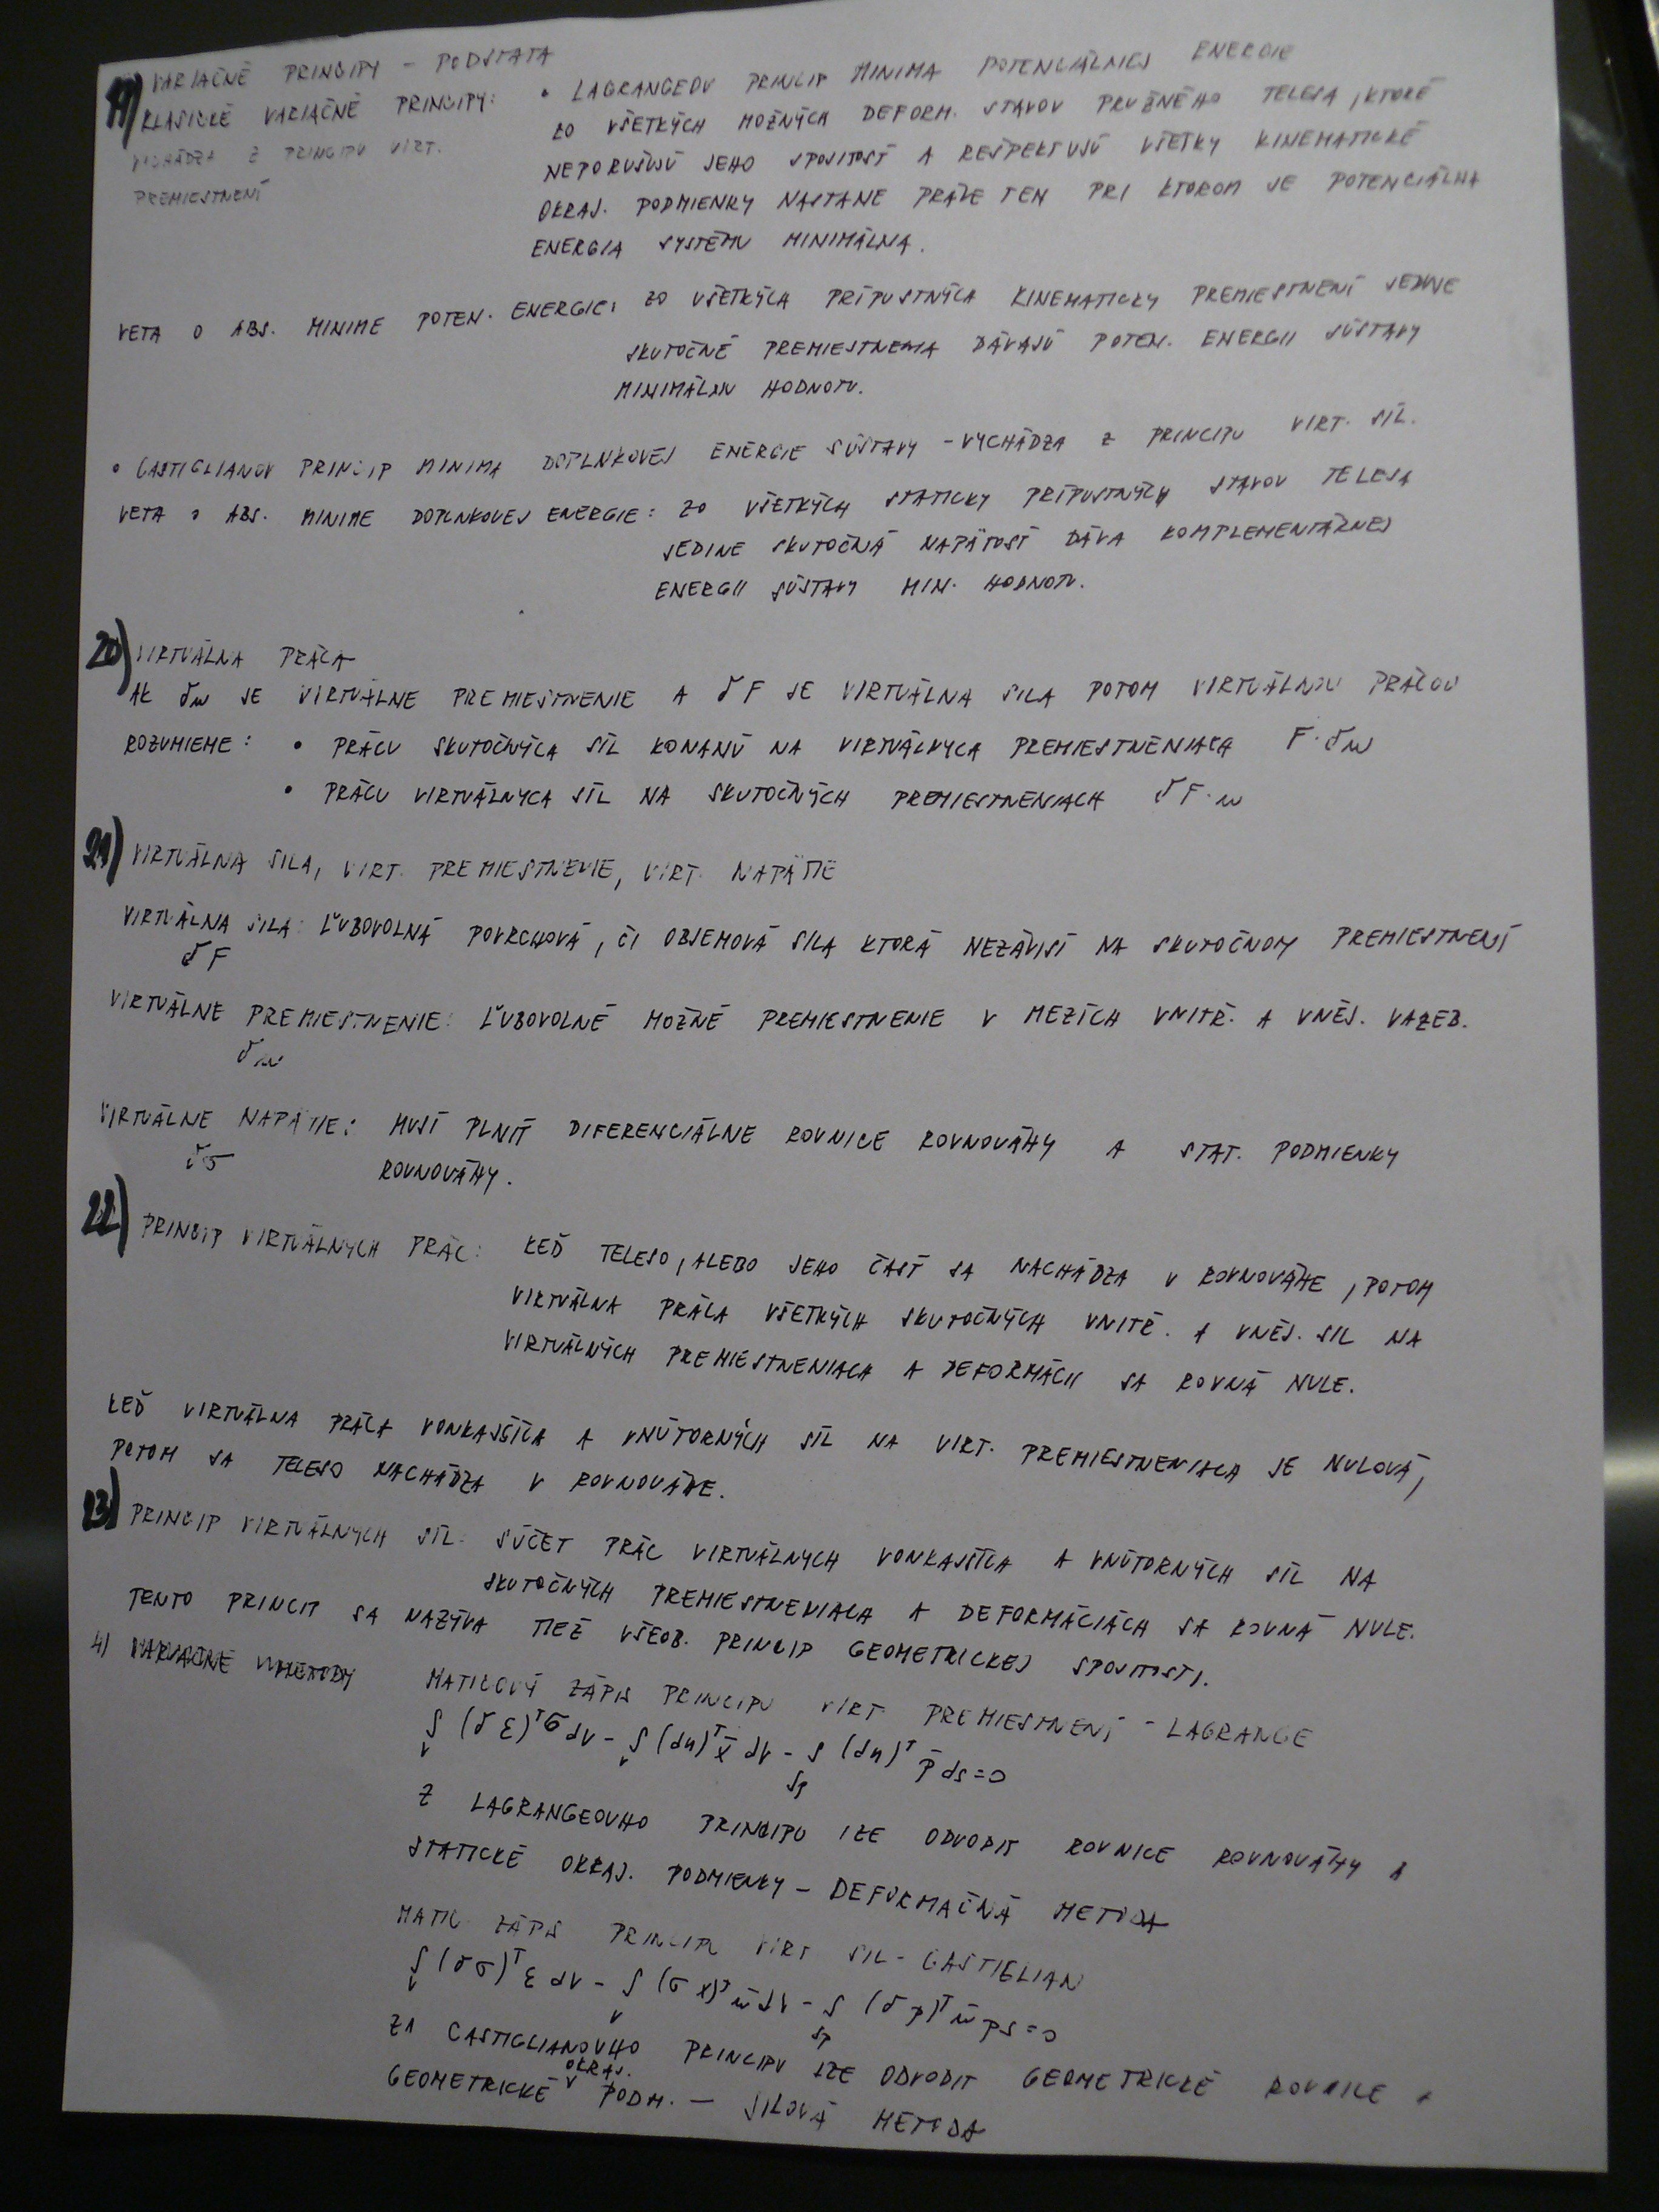 19) VARIAČNÉ PRINCIPY - PODSTATA
KLASICKÉ VARIAČNÉ PRINCIPY: • LAGRANGEOV PRINCIP MINIMA POTENCIÁLNEJ ENERGIE
VYCHÁDZA Z PRINCIPU VIRT. PREMIESTNENÍ
ZO VŠETKÝCH MOŽNÝCH DEFORM. STAVOV PRUŽNÉHO TELESA, KTORÉ
NEPORUŠUJÚ JEHO SPOJITOSŤ A REŠPEKTUJÚ VŠETKY KINEMATICKÉ
OKRAJ. PODMIENKY NASTANE PRÁVE TEN PRI KTOROM JE POTENCIÁLNA
ENERGIA SYSTÉMU MINIMÁLNA.
VETA O ABS. MINIME POTEN. ENERGIE: ZO VŠETKÝCH PRÍPUSTNÝCH KINEMATICKY PREMIESTNENÍ JEDINE
SKUTOČNÉ PREMIESTNENIA DÁVAJÚ POTEN. ENERGII SÚSTAVY
MINIMÁLNU HODNOTU.
• CASTIGLIANOV PRINCIP MINIMA DOPLNKOVEJ ENERGIE SÚSTAVY - VYCHÁDZA Z PRINCIPU VIRT. SÍL.
VETA O ABS. MINIME DOPLNKOVEJ ENERGIE: ZO VŠETKÝCH STATICKY PRÍPUSTNÝCH STAVOV TELESA
JEDINE SKUTOČNÁ NAPÄTOSŤ DÁVA KOMPLEMENTÁRNEJ
ENERGII SÚSTAVY MIN. HODNOTU.
20) VIRTUÁLNA PRÁCA
AK δw JE VIRTUÁLNE PREMIESTNENIE A δF JE VIRTUÁLNA SILA POTOM VIRTUÁLNOU PRÁCOU
ROZUMIEME: • PRÁCU SKUTOČNÝCH SÍL KONANÚ NA VIRTUÁLNYCH PREMIESTNENIACH F·δw
• PRÁCU VIRTUÁLNYCH SÍL NA SKUTOČNÝCH PREMIESTNENIACH δF·w
21) VIRTUÁLNA SILA, VIRT. PREMIESTNENIE, VIRT. NAPÄTIE
VIRTUÁLNA SILA: ĽUBOVOLNÁ POVRCHOVÁ, ČI OBJEMOVÁ SILA KTORÁ NEZÁVISÍ NA SKUTOČNOM PREMIESTNENÍ
δF
VIRTUÁLNE PREMIESTNENIE: ĽUBOVOLNÉ MOŽNÉ PREMIESTNENIE V MEZÍCH VNITŘ. A VNĚJ. VAZEB.
δw
VIRTUÁLNE NAPÄTIE: MUSÍ PLNIŤ DIFERENCIÁLNE ROVNICE ROVNOVÁHY A STAT. PODMIENKY
δσ ROVNOVÁHY.
22) PRINCIP VIRTUÁLNYCH PRÁC: KEĎ TELESO, ALEBO JEHO ČASŤ SA NACHÁDZA V ROVNOVÁHE, POTOM
VIRTUÁLNA PRÁCA VŠETKÝCH SKUTOČNÝCH VNITŘ. A VNĚJ. SIL NA
VIRTUÁLNÝCH PREMIESTNENIACH A DEFORMÁCII SA ROVNÁ NULE.
KEĎ VIRTUÁLNA PRÁCA VONKAJŠÍCH A VNÚTORNÝCH SÍL NA VIRT. PREMIESTNENIACH JE NULOVÁ,
POTOM SA TELESO NACHÁDZA V ROVNOVÁHE.
23) PRINCIP VIRTUÁLNYCH SÍL: SÚČET PRÁC VIRTUÁLNYCH VONKAJŠÍCH A VNÚTORNÝCH SÍL NA
SKUTOČNÝCH PREMIESTNENIACH A DEFORMÁCIÁCH SA ROVNÁ NULE.
TENTO PRINCIP SA NAZÝVA TIEŽ VŠEOB. PRINCIP GEOMETRICKEJ SPOJITOSTI.
4) VARIAČNÉ METODY MATICOVÝ ZÁPIS PRINCIPU VIRT PREMIESTNENÍ - LAGRANGE
∫v (δε)ᵀσ dv - ∫v (δu)ᵀ X̄ dv - ∫Sp (δu)ᵀ p̄ ds = 0
Z LAGRANGEOVHO PRINCIPU LZE ODVODIT ROVNICE ROVNOVÁHY A
STATICKÉ OKRAJ. PODMIENKY - DEFORMAČNÁ METODA
MATIC. ZÁPIS PRINCIPU VIRT SIL - CASTIGLIAN
∫v (δσ)ᵀ ε dv - ∫v (σX)ᵀ ū dv - ∫Sp (δp)ᵀ ū ps = 0
ZA CASTIGLIANOVHO PRINCIPU LZE ODVODIT GEOMETRICKÉ ROVNICE A
GEOMETRICKÉ OKRAJ. PODM. - SILOVÁ METODA